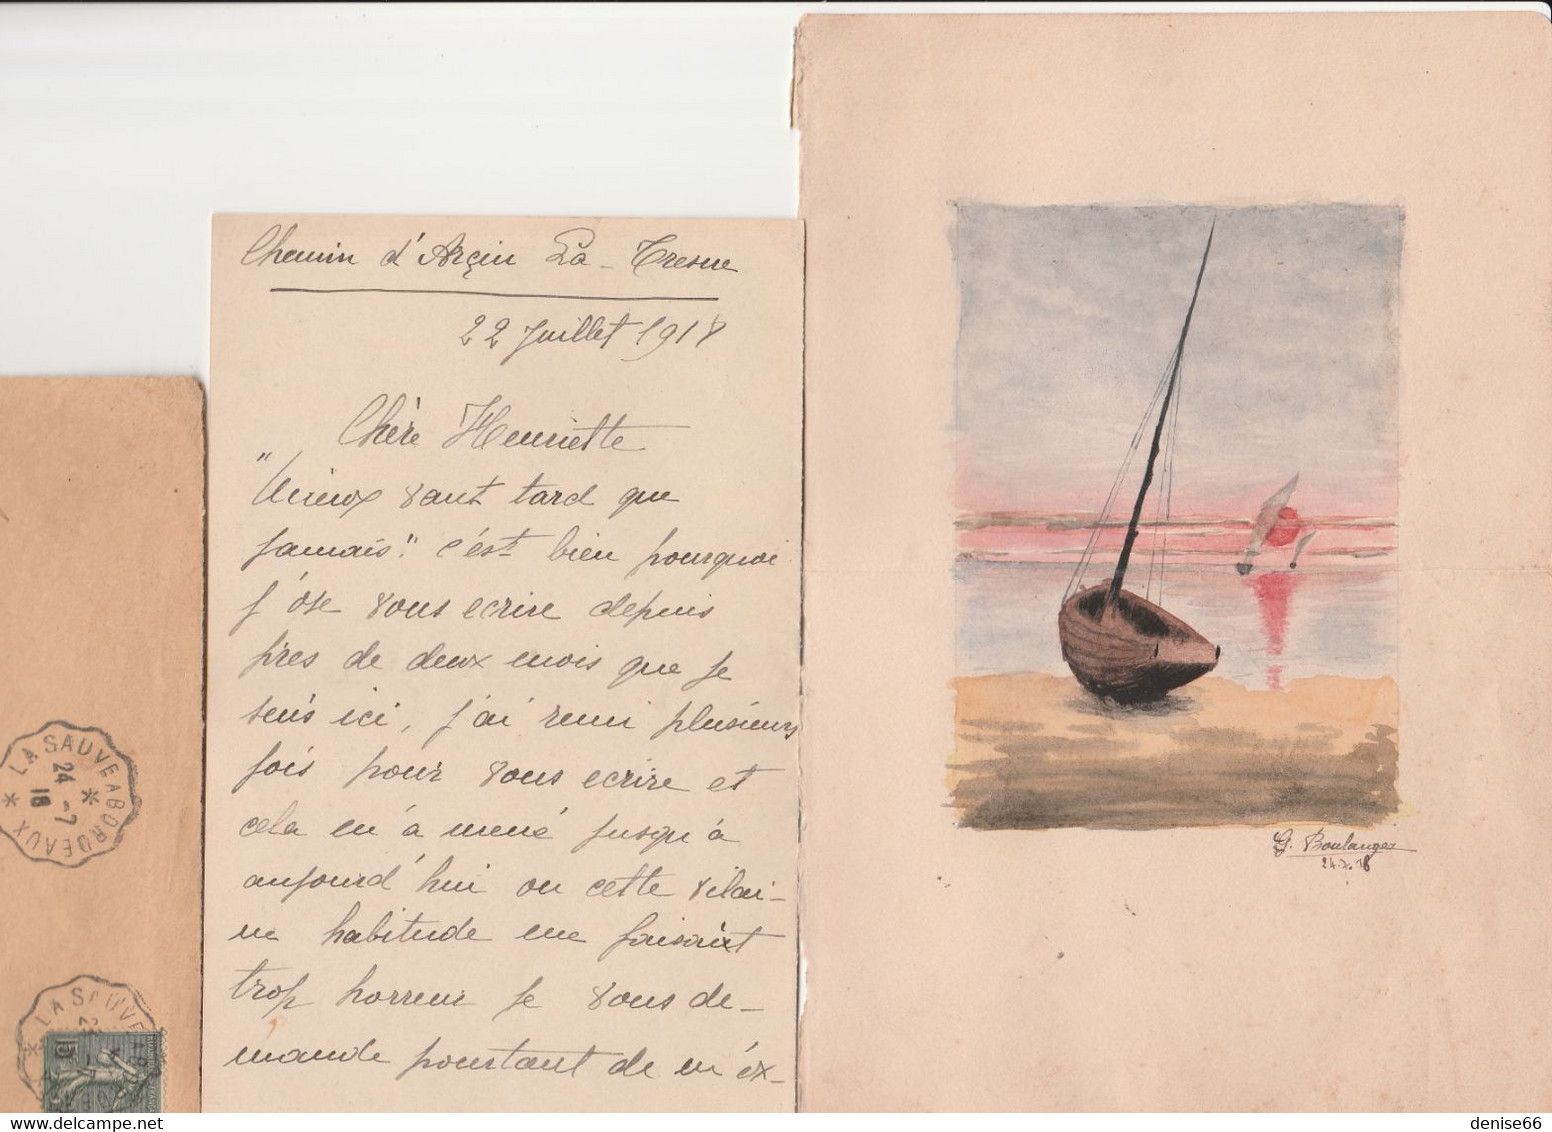 Chemin d'Arçin La-Tresne
22 Juillet 1918
Chère Henriette
"Mieux vaut tard que
jamais". c'est bien pourquoi
j'ose vous ecrire depuis
près de deux mois que je
suis ici, j'ai remi plusieurs
fois pour vous ecrire et
cela m'a mené jusqu'à
aujourd'hui ou cette vilai-
ne habitude me faisait
trop horreur je vous de-
mande pourtant de m'ex-
G. Boulanger
24.7.18
LA SAUVE A BORDEAUX
24 -7
18
LA SAUVE A
15
denise66